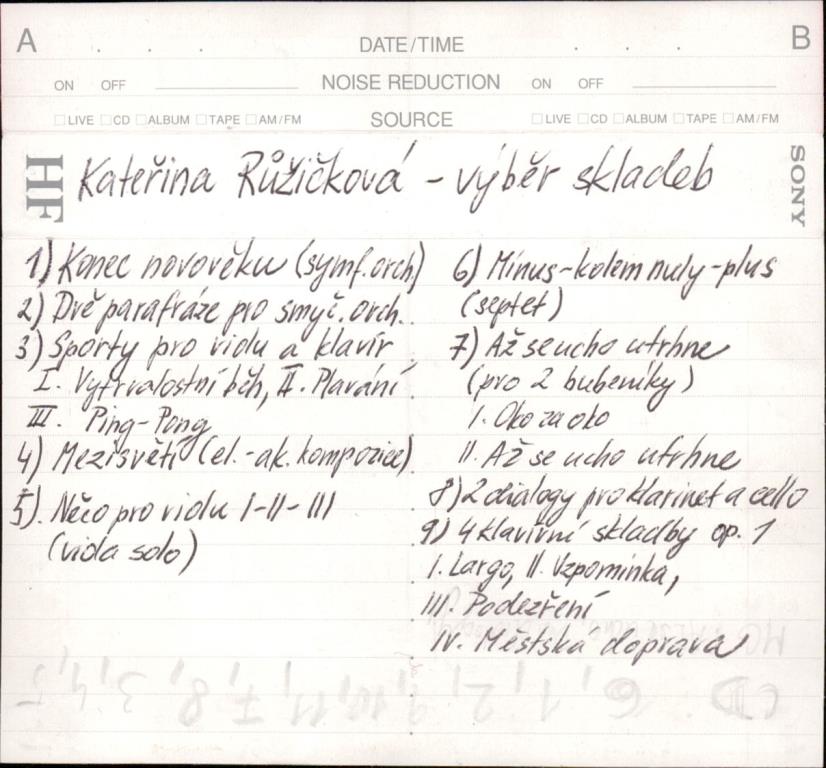 A B
DATE/TIME
ON OFF NOISE REDUCTION ON OFF
□LIVE □CD □ALBUM □TAPE □AM/FM SOURCE □LIVE □CD □ALBUM □TAPE □AM/FM
HF
SONY
Kateřina Růžičková - výběr skladeb
1) Konec novověku (symf. orch)
2) Dvě parafráze pro smyč. orch.
3) Sporty pro violu a klavír
I. Vytrvalostní běh, II. Plavání
III. Ping-Pong
4) Mezisvětí (el.-ak. kompozice)
5) Něco pro violu I-II-III
(viola solo)
6) Minus-kolem nuly-plus
(septet)
7) Až se ucho utrhne
(pro 2 bubeníky)
I. Oko za oko
II. Až se ucho utrhne
8) 2 dialogy pro klarinet a cello
9) 4 klavírní skladby op. 1
I. Largo, II. Vzpomínka,
III. Podezření
IV. Městská doprava